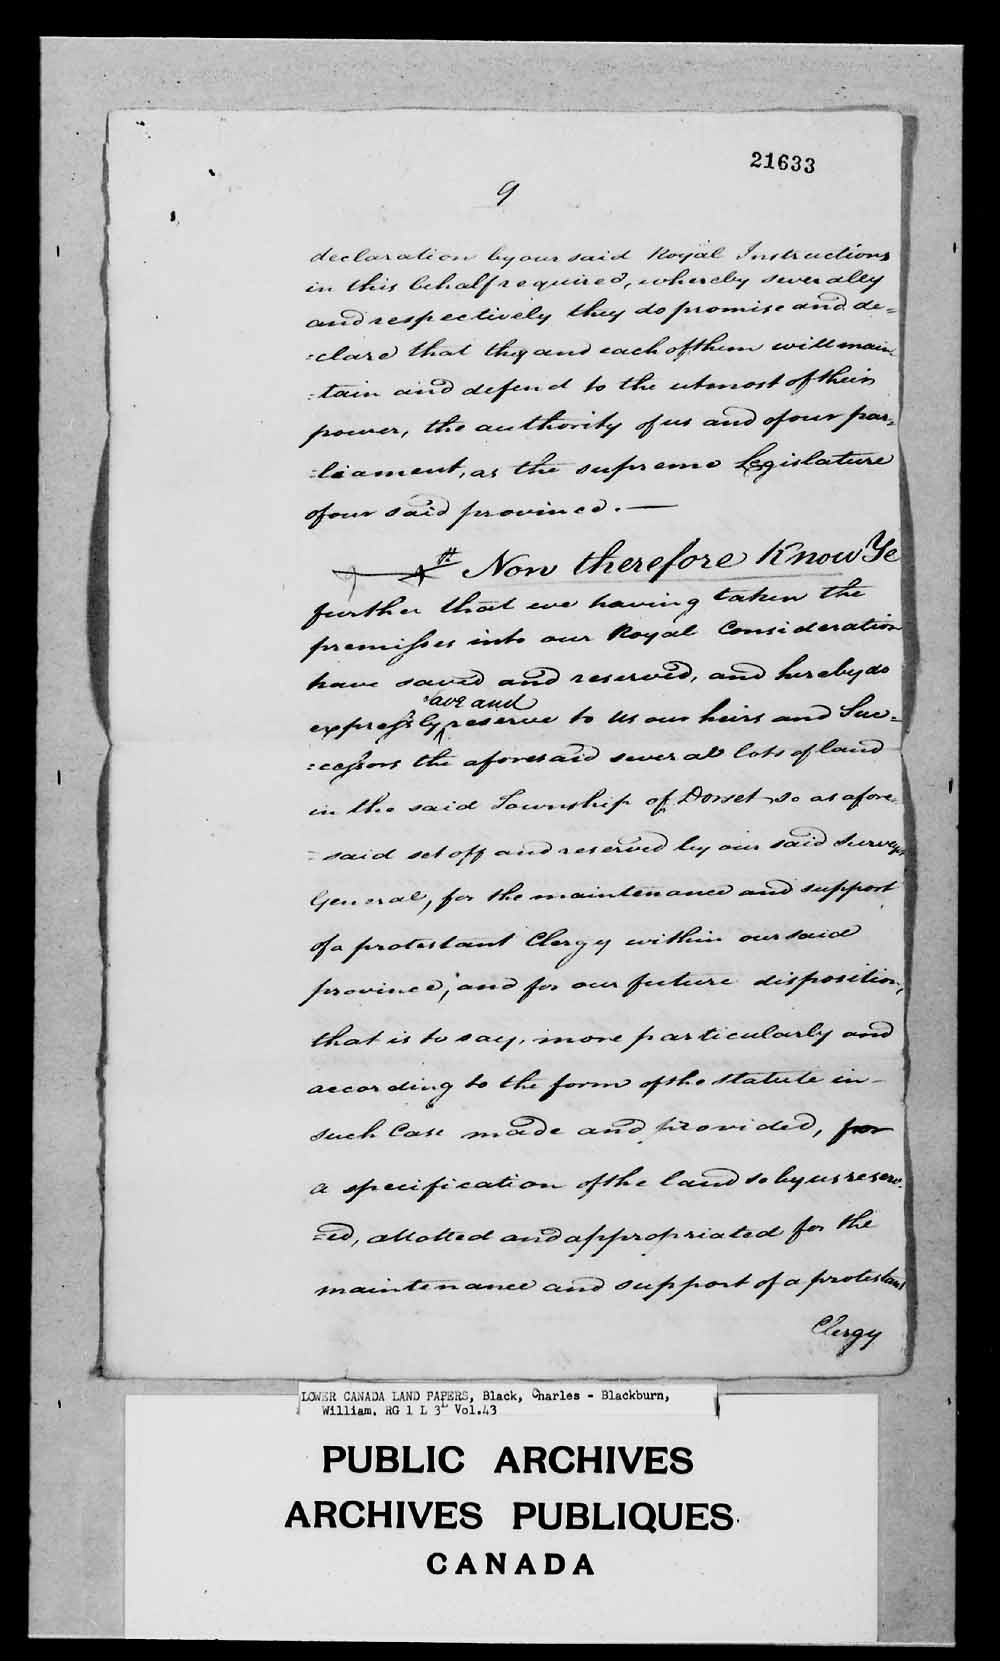 21633
9
declaration by our said Royal Instructions
in this behalf required, whereby severally
and respectively they do promise and de=
=clare that they and each of them will main
=tain and defend to the utmost of their
power, the authority of us and of our par=
=liament, as the supreme Legislature
of our said province. —
# Now therefore Know Ye
further that we having taken the
premisses into our Royal Consideration
have saved and reserved, and hereby do
save and
expressly reserve to us our heirs and Suc=
=cessors the aforesaid several lots of land
in the said Township of Dorset so as afore=
=said set off and reserved by our said Surveyor
General, for the maintenance and support
of a protestant Clergy within our said
province, and for our future disposition,
that is to say, more particularly and
according to the form of the statute in
such Case made and provided, for
a specification of the land so by us reserv=
=ed, allotted and appropriated for the
maintenance and support of a protestant
Clergy
LOWER CANADA LAND PAPERS, Black, Charles - Blackburn,
William. RG 1 L 3L Vol.43
PUBLIC ARCHIVES
ARCHIVES PUBLIQUES
CANADA